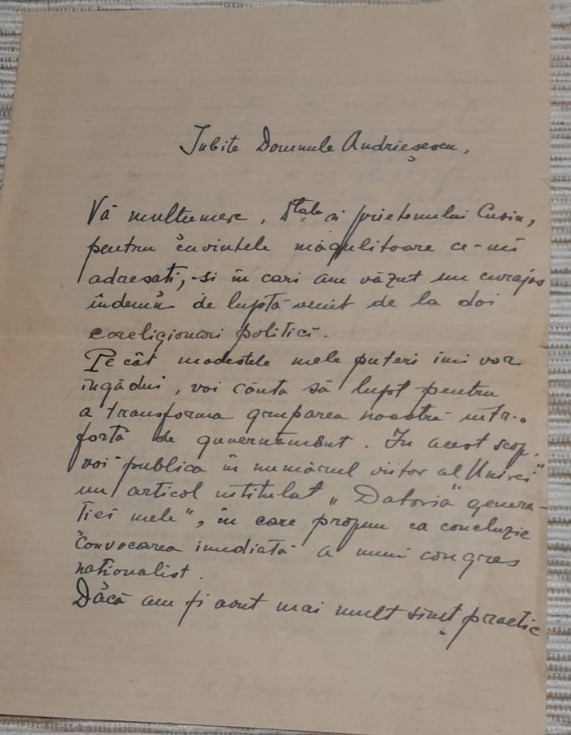 Iubite Domnule Andrieșescu,
Vă mulțumesc, Dtale și prietenului Cusin,
pentru cuvintele măgulitoare ce-mi
adresați, și în cari am văzut un curajos
îndemn de luptă venit de la doi
coreligionari politici.
Pe cât modestele mele puteri îmi vor
îngădui, voi căuta să lupt pentru
a transforma gruparea noastră într-o
forță de guvernământ. In acest scop,
voi publica în numărul viitor al Unirei
un articol intitulat „Datoria genera-
ției mele", în care propun ca concluzie
convocarea imediată a unui congres
naționalist.
Dacă am fi avut mai mult simț practic